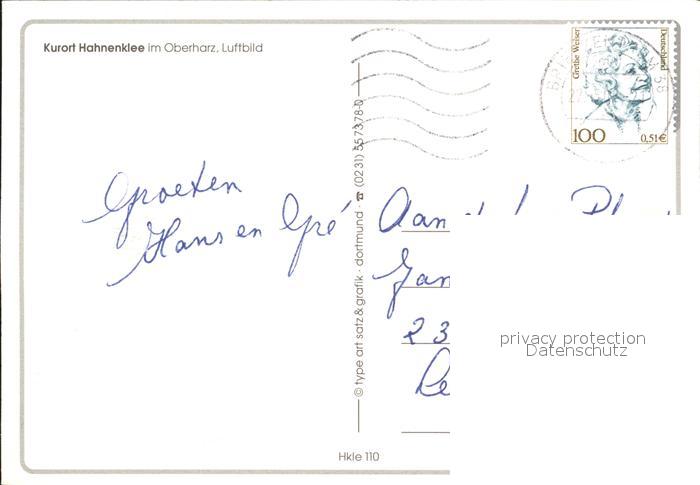 Kurort Hahnenklee im Oberharz, Luftbild
Grethe Weiser
Deutschland
100
0,51€
Groeten
Hans en Gré
© type art satz & grafik · dortmund · ☎ (0231) 557378-0
Aan
Jan
23
privacy protection
Datenschutz
Hkle 110